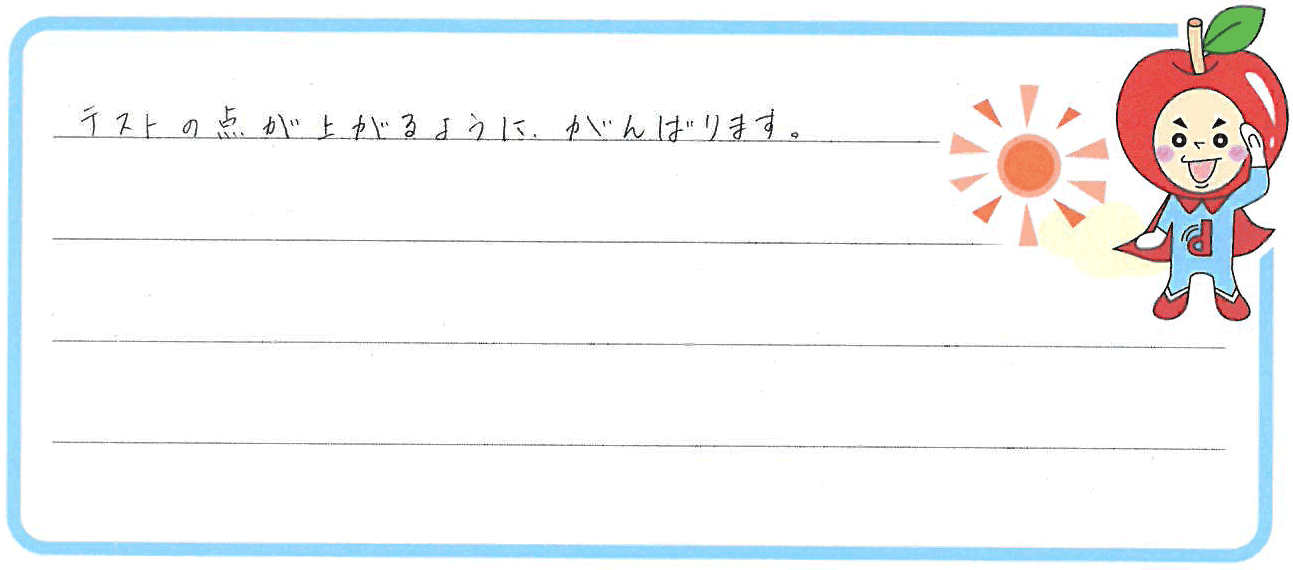 テストの点が上がるように、がんばります。